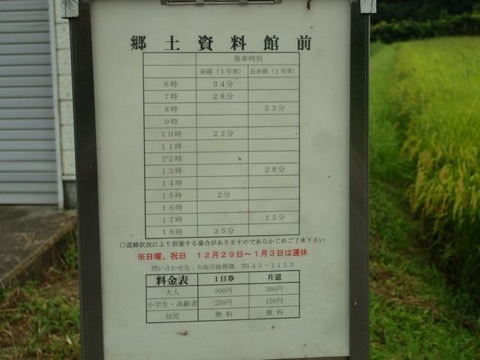 郷土資料館前
発車時刻
泉線（1号車） 長井線（1号車）
6時 34分
7時 28分
8時 53分
9時
10時 22分
11時
12時
13時 28分
14時
15時 2分
16時
17時 15分
18時 35分
○道路状況により前後する場合がありますのであらかじめご了承下さい
※日曜、祝日 12月29日～1月3日は運休
問い合わせ先：矢板市総務課 TEL43－1113
料金表 1日券 片道
大人 500円 300円
小学生・高齢者 250円 150円
幼児 無料 無料